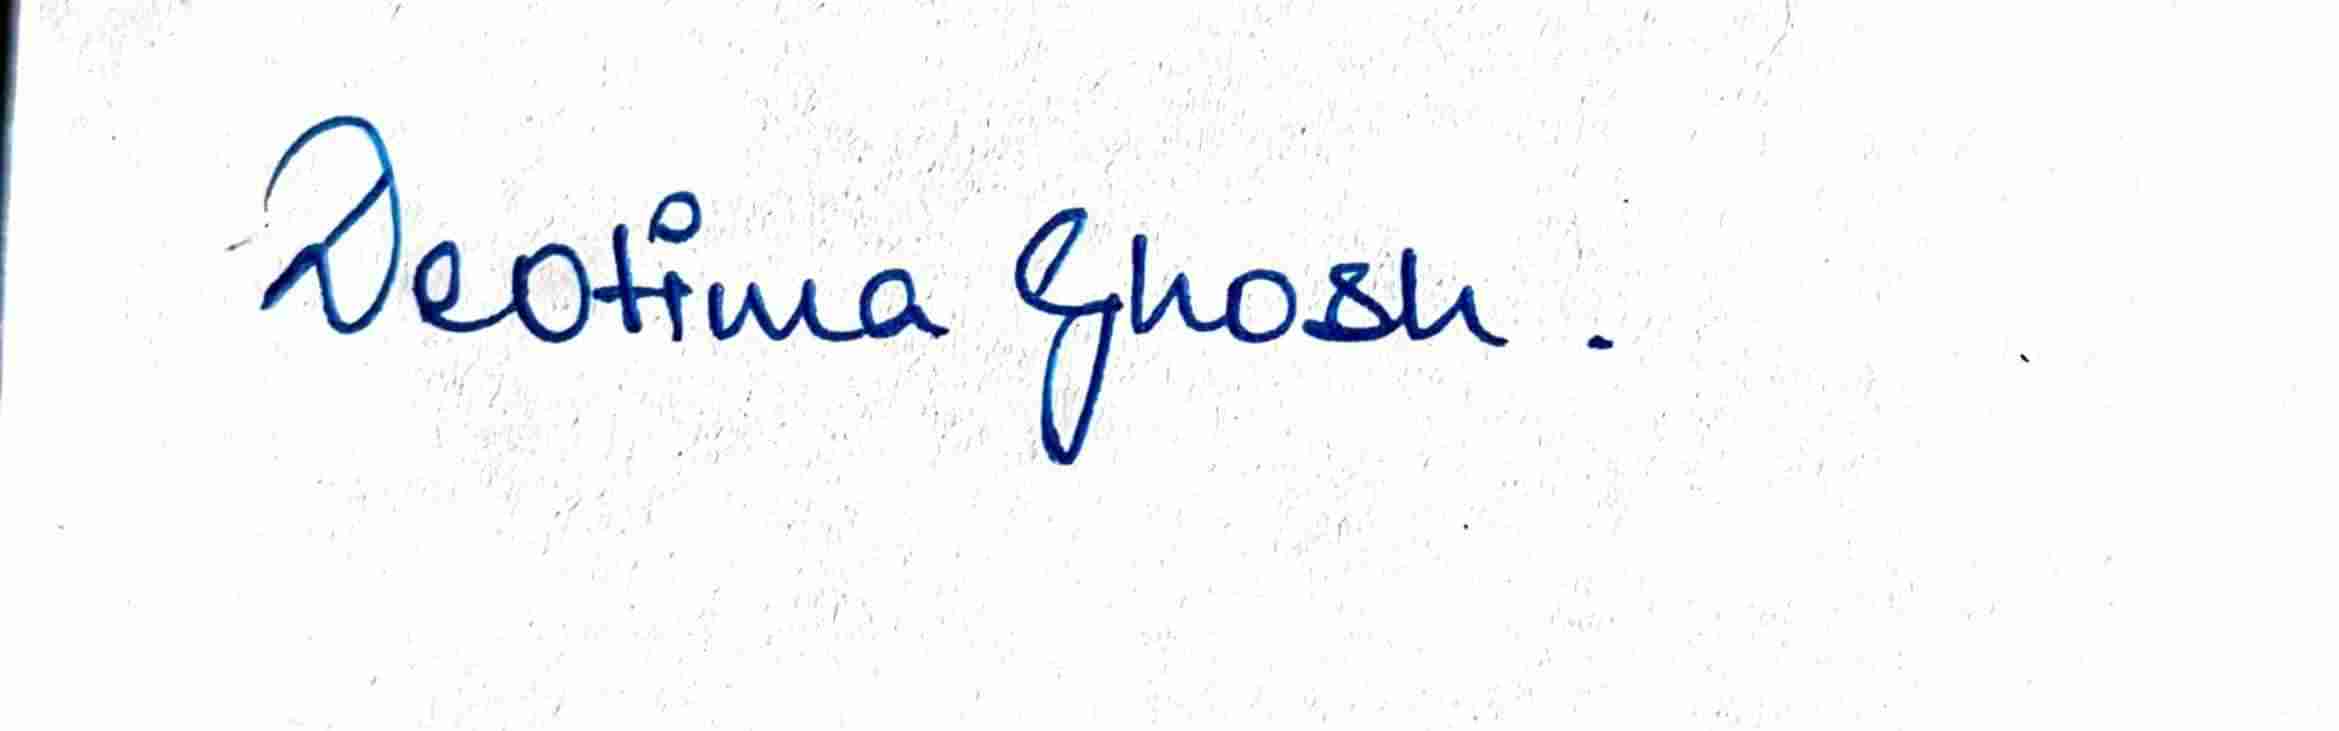 Deotima Ghosh.